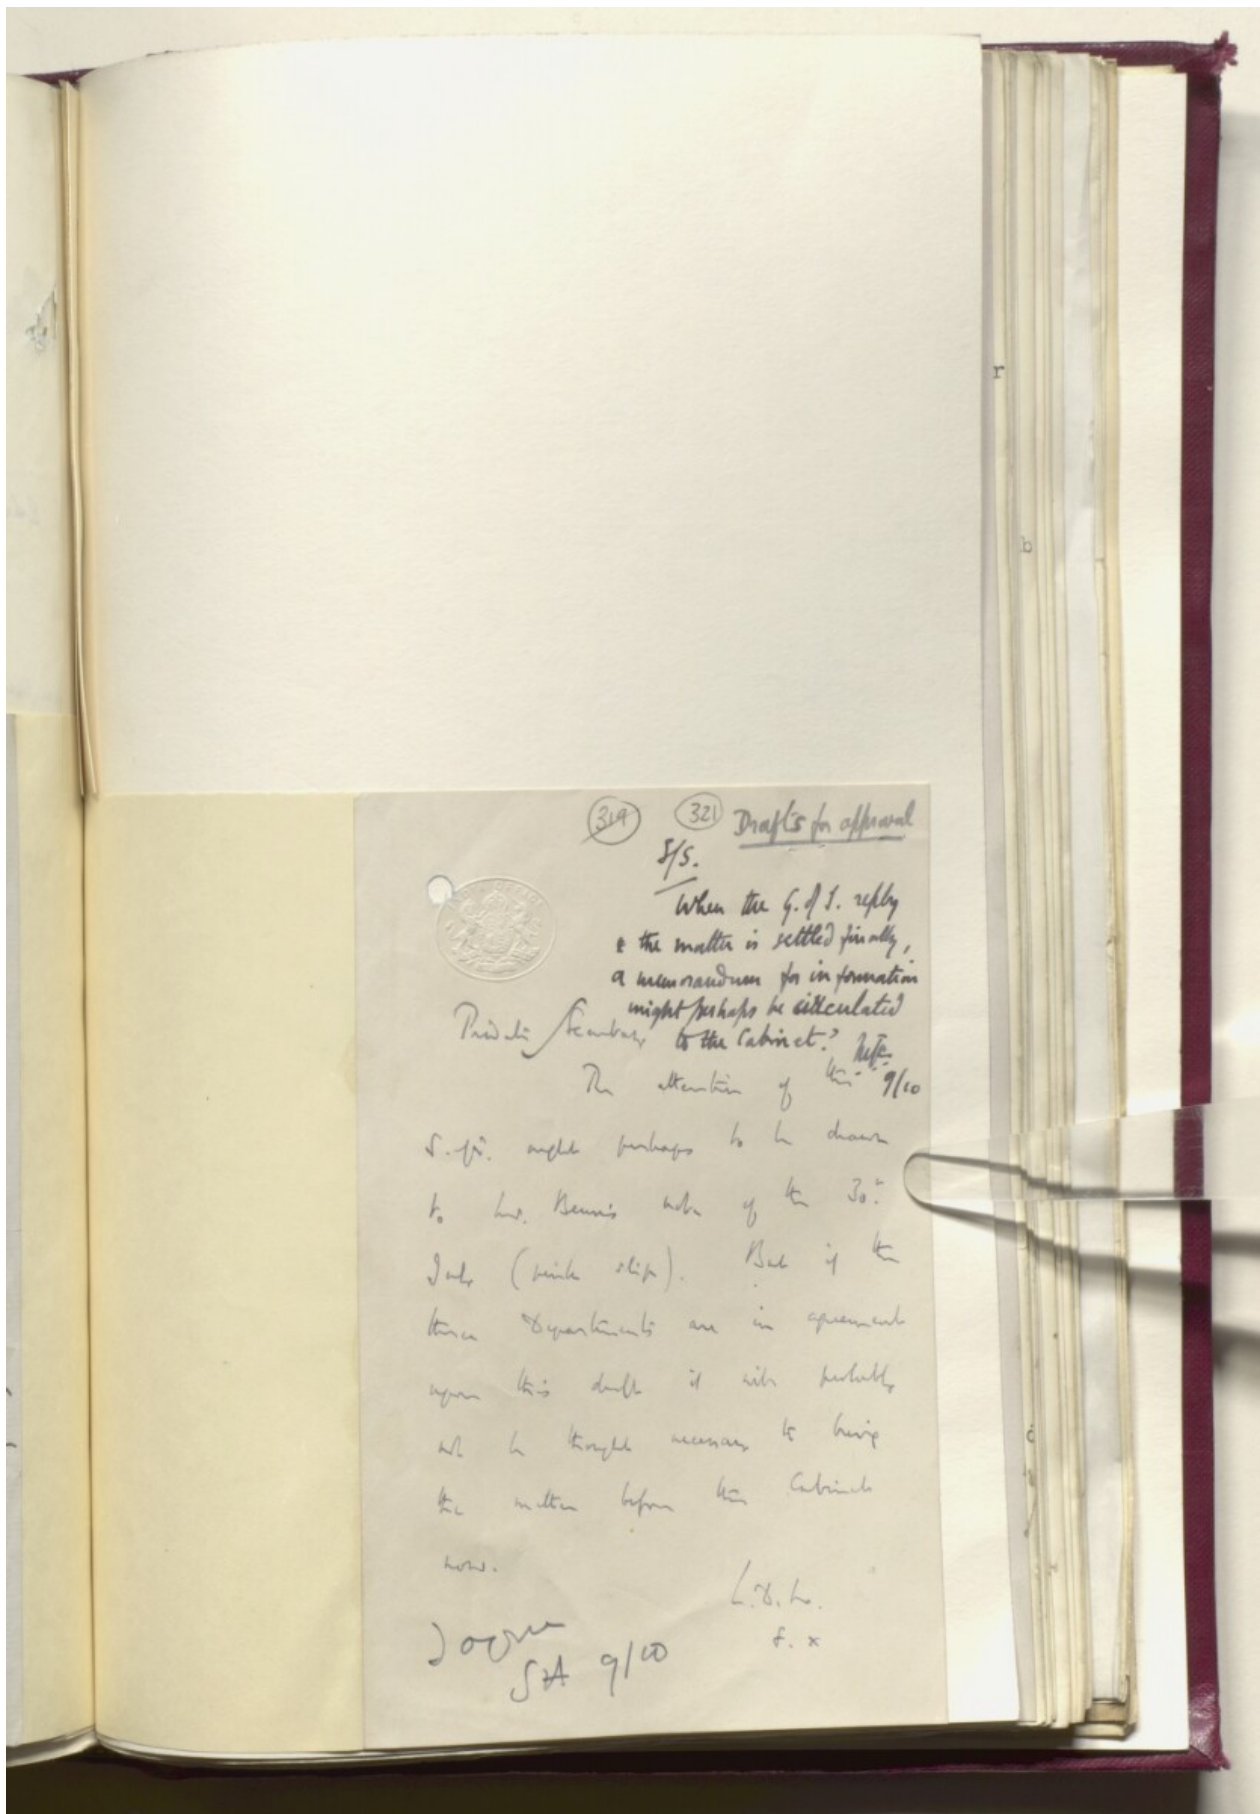 319 321 Drafts for approval
S/S.
When the G. of I. reply
& the matter is settled finally,
a memorandum for information
might perhaps be circulated
Private Secretary to the Cabinet?
The attention of the 9/10
S. of S. ought perhaps to be drawn
to Mr. Benn's note of the 30th
July (pink slip). But if the
three Departments are in agreement
upon this draft it will probably
not be thought necessary to bring
the matter before the Cabinet
now.
I agree
9/10
r
b